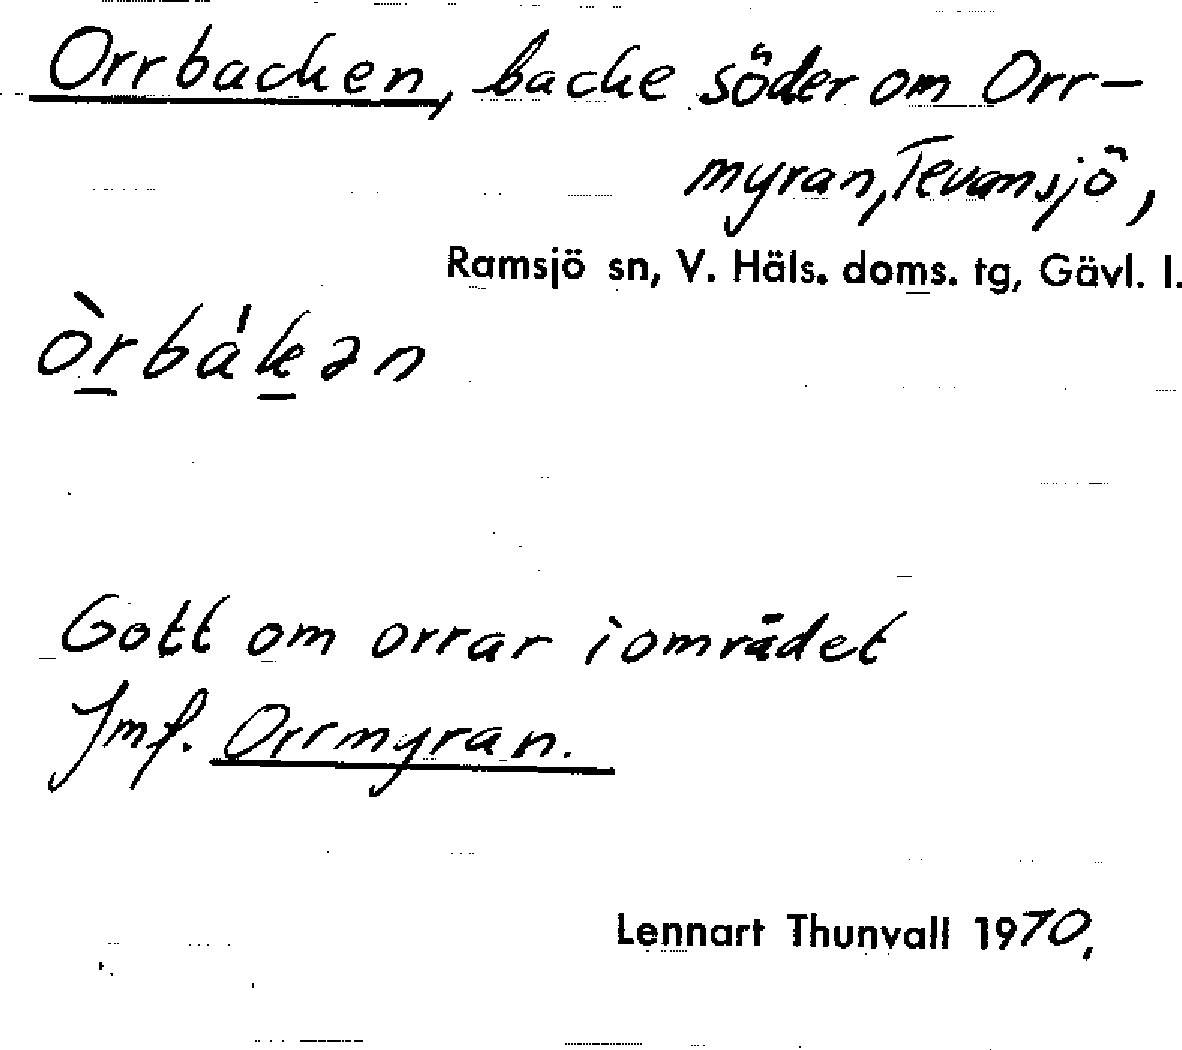 Orrbacken, backe söder om Orr-
myran, Tevansjö,
Ramsjö sn, V. Häls. doms. tg, Gävl. l.
òr̲bák̲ən
Gott om orrar i området
Jmf. Orrmyran.
Lennart Thunvall 1970.